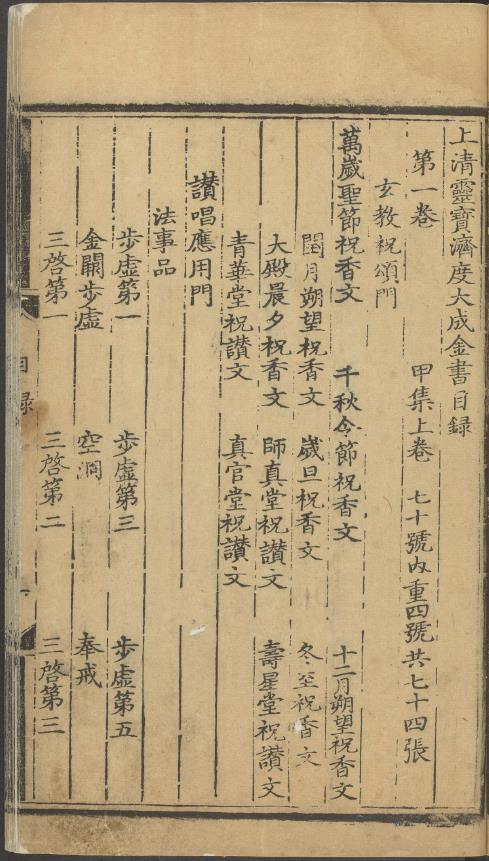 上清靈寶濟度大成金書目録
第一卷 甲集上卷 七十號内重四號共七十四張
玄教祝頌門
萬歲聖節祝香文 千秋令節祝香文 十二月朔望祝香文
閏月朔望祝香文 歲旦祝香文 冬至祝香文
大殿晨夕祝香文 師真堂祝讚文 壽星堂祝讚文
青華堂祝讚文 真官堂祝讚文
讚唱應用門
法事品
步虛第一 步虛第三 步虛第五
金闕步虛 空洞 奉戒
三啓第一 三啓第二 三啓第三
目録
一